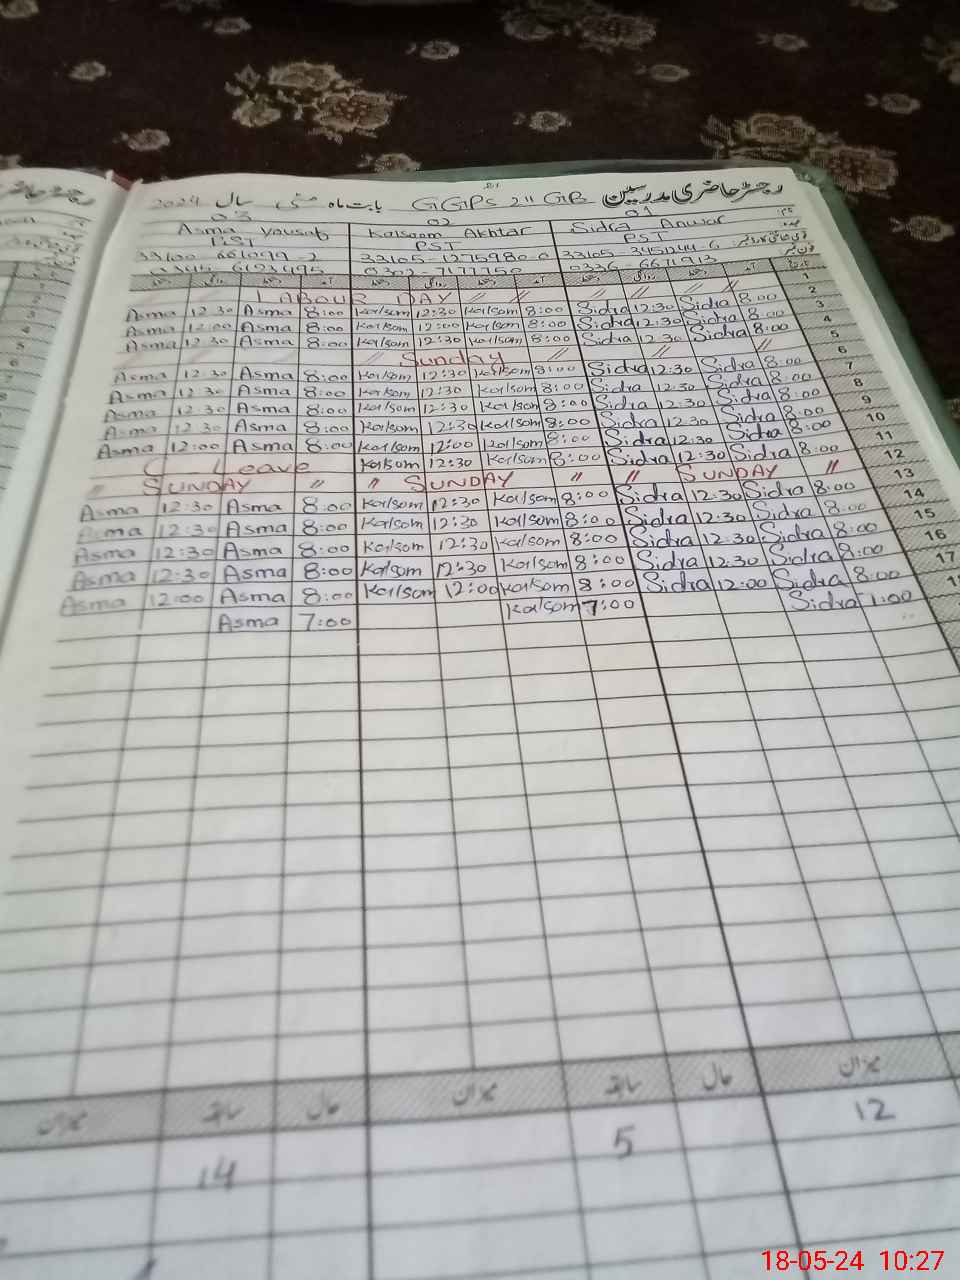 رجسٹر حاضری مدرسین GGPS 211 GB بابت ماہ مئی سال 2024
03 02 01
Asma Yousaf Kalsoom Akhtar Sidra Anwar
PST PST PST
33105-1275980-0
0302-7177750
1
LABOUR DAY // // // // // // 2
Asma 12:30 Asma 8:00 Kalsom 12:30 Kalsom 8:00 Sidra 12:30 Sidra 8:00 3
Asma 12:00 Asma 8:00 Kalsom 12:00 Kalsom 8:00 Sidra 12:30 Sidra 8:00 4
Asma 12:30 Asma 8:00 Kalsom 12:30 Kalsom 8:00 Sidra 12:30 Sidra 8:00 5
// Sunday // // // 6
Asma 12:30 Asma 8:00 Kalsom 12:30 Kalsom 8:00 Sidra 12:30 Sidra 8:00 7
Asma 12:30 Asma 8:00 Kalsom 12:30 Kalsom 8:00 Sidra 12:30 Sidra 8:00 8
Asma 12:30 Asma 8:00 Kalsom 12:30 Kalsom 8:00 Sidra 12:30 Sidra 8:00 9
Asma 12:30 Asma 8:00 Kalsom 12:30 Kalsom 8:00 Sidra 12:30 Sidra 8:00 10
Asma 12:00 Asma 8:00 Kalsom 12:00 Kalsom 8:00 Sidra 12:30 Sidra 8:00 11
C - Leave Kalsom 12:30 Kalsom 8:00 Sidra 12:30 Sidra 8:00 12
// SUNDAY // // SUNDAY // // SUNDAY // 13
Asma 12:30 Asma 8:00 Kalsom 12:30 Kalsom 8:00 Sidra 12:30 Sidra 8:00 14
Asma 12:30 Asma 8:00 Kalsom 12:30 Kalsom 8:00 Sidra 12:30 Sidra 8:00 15
Asma 12:30 Asma 8:00 Kalsom 12:30 Kalsom 8:00 Sidra 12:30 Sidra 8:00 16
Asma 12:30 Asma 8:00 Kalsom 12:30 Kalsom 8:00 Sidra 12:30 Sidra 8:00 17
Asma 12:00 Asma 8:00 Kalsom 12:00 Kalsom 8:00 Sidra 12:00 Sidra 8:00
Asma 7:00 Kalsom 7:00 Sidra 7:00
میزان حال سابقہ میزان حال سابقہ میزان
12 5 14
18-05-24 10:27